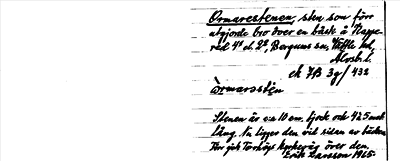 Ormarestenen, sten som förr
utgjorde bro över en bäck å Nappe-
red 4² o. 2², Bergums sn, Vättle hd,
Älvsb. l.
ek 7B 3g/432
òrmarəstèn
Stenen är c:a 10 cm. tjock och 4,25 met
lång. Nu ligger den vid sidan av bäcken
Här gick kyrkväg över den.
Erik Larsson 1965.